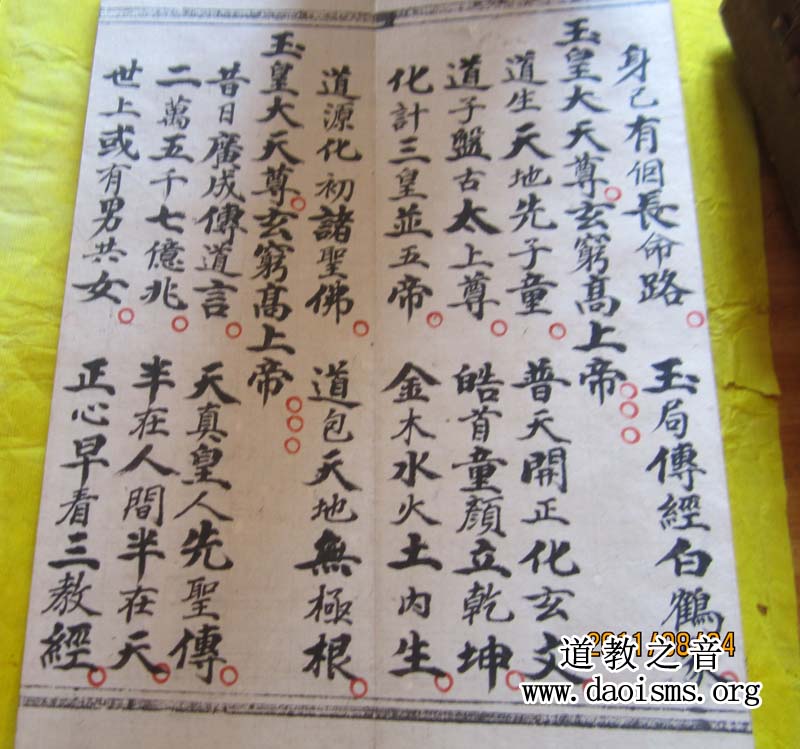 身己有個長命路 玉局傳經白鶴
玉皇大天尊玄窮高上帝
道生天地先子童 普天開正化玄文
道子盤古太上尊 皓首童顏立乾坤
化計三皇並五帝 金木水火土內生
道源化初諸聖佛 道包天地無極根
玉皇大天尊玄窮高上帝
昔日廣成傳道言 天真皇人先聖傳
二萬五千七億兆 半在人間半在天
世上或有男共女 正心早看三教經
道教之音
www.daoisms.org